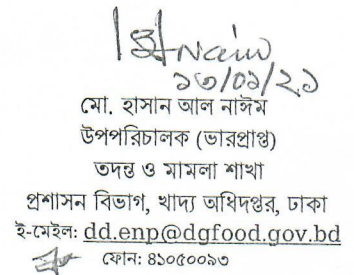 ১৩/০৯/২১
মো. হাসান আল নাঈম
উপপরিচালক (ভারপ্রাপ্ত)
তদন্ত ও মামলা শাখা
প্রশাসন বিভাগ, খাদ্য অধিদপ্তর, ঢাকা
ই-মেইল: dd.enp@dgfood.gov.bd
ফোন: ৪১০৫০০৯৩